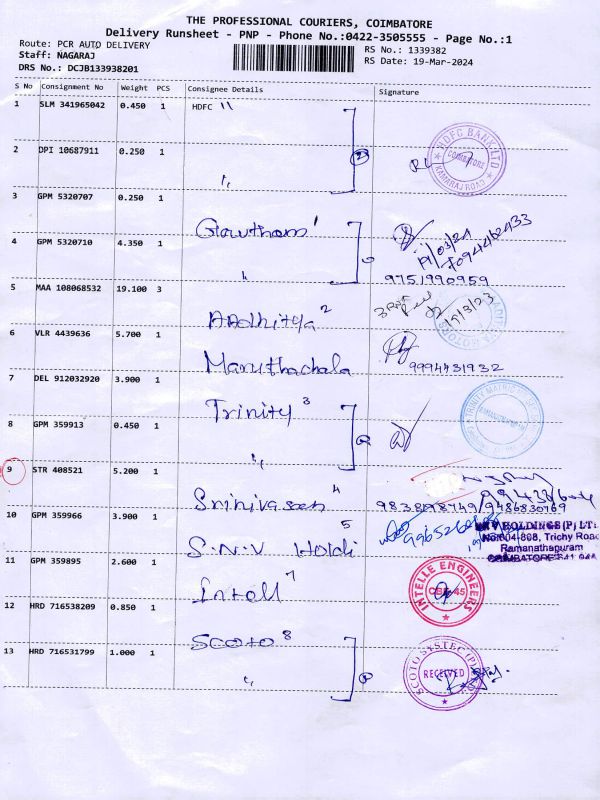 THE PROFESSIONAL COURIERS, COIMBATORE
Delivery Runsheet - PNP - Phone No.:0422-3505555 - Page No.:1
Route: PCR AUTO DELIVERY
RS No.: 1339382
Staff: NAGARAJ
RS Date: 19-Mar-2024
DRS No.: DCJB133938201
S No Consignment No Weight PCS Consignee Details Signature
1 SLM 341965042 0.450 1 HDFC 11
2 DPI 10687911 0.250 1 "
HDFC BANK LTD COIMBATORE KAMARAJ ROAD
3 GPM 5320707 0.250 1
Gowtham 1
19/03/24
7094462433
4 GPM 5320710 4.350 1 "
9751990959
5 MAA 108068532 19.100 3
AAdhitya 2
6 VLR 4439636 5.700 1
Maruthachala
9994431932
7 DEL 912032920 3.900 1
Trinity 3
8 GPM 359913 0.450 1 "
9 STR 408521 5.200 1
Srinivasan 4
9486830769
10 GPM 359966 3.900 1
S.N.V Holdi 5
HOLDINGS (P) LT
No:604-808, Trichy Road
Ramanathapuram
COIMBATORE-641 044
11 GPM 359895 2.600 1
Intell 7
INTELLE ENGINEERS
CBE-45
12 HRD 716538209 0.850 1
Scoto 8
13 HRD 716531799 1.000 1 "
SCOTO SYSTEC (P)
RECEIVED